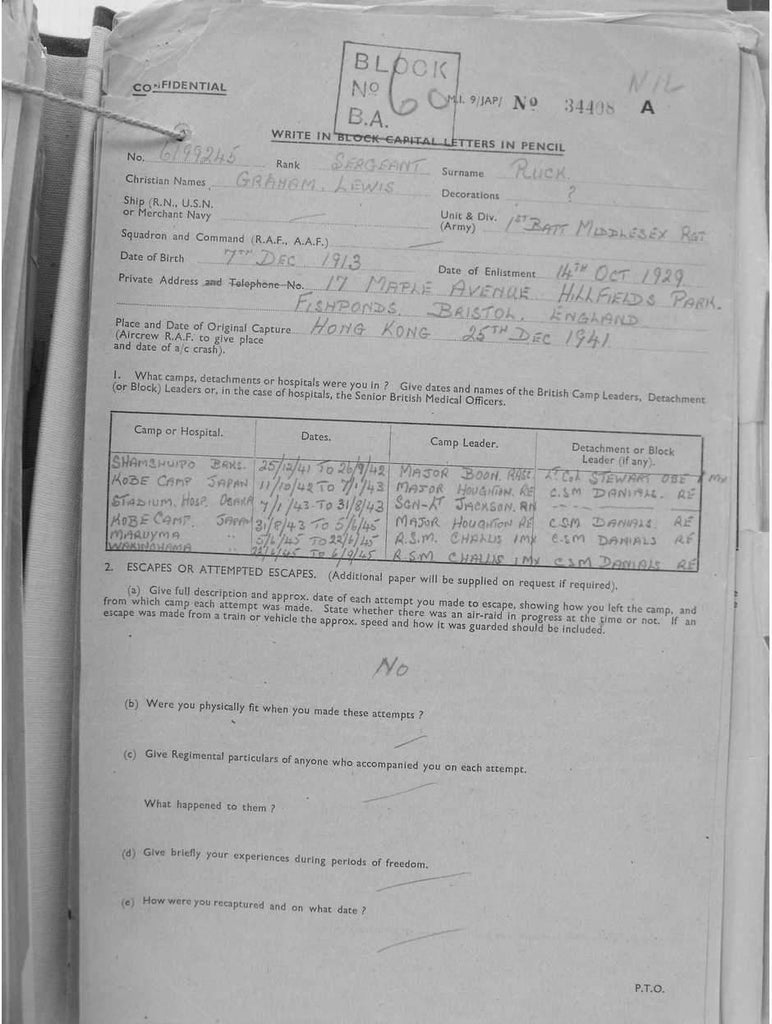 CONFIDENTIAL
BLOCK
No 60
B.A.
M.I. 9/JAP/ No 34408 A
NIL
WRITE IN BLOCK CAPITAL LETTERS IN PENCIL
No. 6199245 Rank SERGEANT Surname RUCK.
Christian Names GRAHAM. LEWIS Decorations ?
Ship (R.N., U.S.N.
or Merchant Navy
Unit & Div.
(Army) 1ST BATT MIDDLESEX RGT
Squadron and Command (R.A.F., A.A.F.)
Date of Birth 7TH DEC 1913 Date of Enlistment 14TH OCT 1929
Private Address and Telephone No. 17 MAPLE AVENUE HILLFIELDS PARK.
FISHPONDS. BRISTOL. ENGLAND
Place and Date of Original Capture HONG KONG 25TH DEC 1941.
(Aircrew R.A.F. to give place
and date of a/c crash).
1. What camps, detachments or hospitals were you in ? Give dates and names of the British Camp Leaders, Detachment
(or Block) Leaders or, in the case of hospitals, the Senior British Medical Officers.
Camp or Hospital. Dates. Camp Leader. Detachment or Block
Leader (if any).
SHAMSHUIPO BRKS. 25/12/41 TO 26/9/42 MAJOR BOON. LT COL STEWART OBE 1 MX
KOBE CAMP JAPAN 11/10/42 TO 7/1/43 MAJOR HOUGHTON. RE C.SM DANIALS. RE
STADIUM. HOSP. OSAKA 7/1/43 TO 31/8/43 SGN-LT JACKSON. RN
KOBE CAMP. JAPAN 31/8/43 TO 5/6/45 MAJOR HOUGHTON RE CSM DANIALS. RE
MARUYMA " " 5/6/45 TO 22/6/45 R.S.M. CHALLIS 1 MX C.SM DANIALS RE
WAKINOHAMA " " 22/6/45 TO 6/9/45 R.S.M CHALLIS 1 MX CSM DANIALS RE
2. ESCAPES OR ATTEMPTED ESCAPES. (Additional paper will be supplied on request if required).
(a) Give full description and approx. date of each attempt you made to escape, showing how you left the camp, and
from which camp each attempt was made. State whether there was an air-raid in progress at the time or not. If an
escape was made from a train or vehicle the approx. speed and how it was guarded should be included.
NO
(b) Were you physically fit when you made these attempts ?
(c) Give Regimental particulars of anyone who accompanied you on each attempt.
What happened to them ?
(d) Give briefly your experiences during periods of freedom.
(e) How were you recaptured and on what date ?
P.T.O.